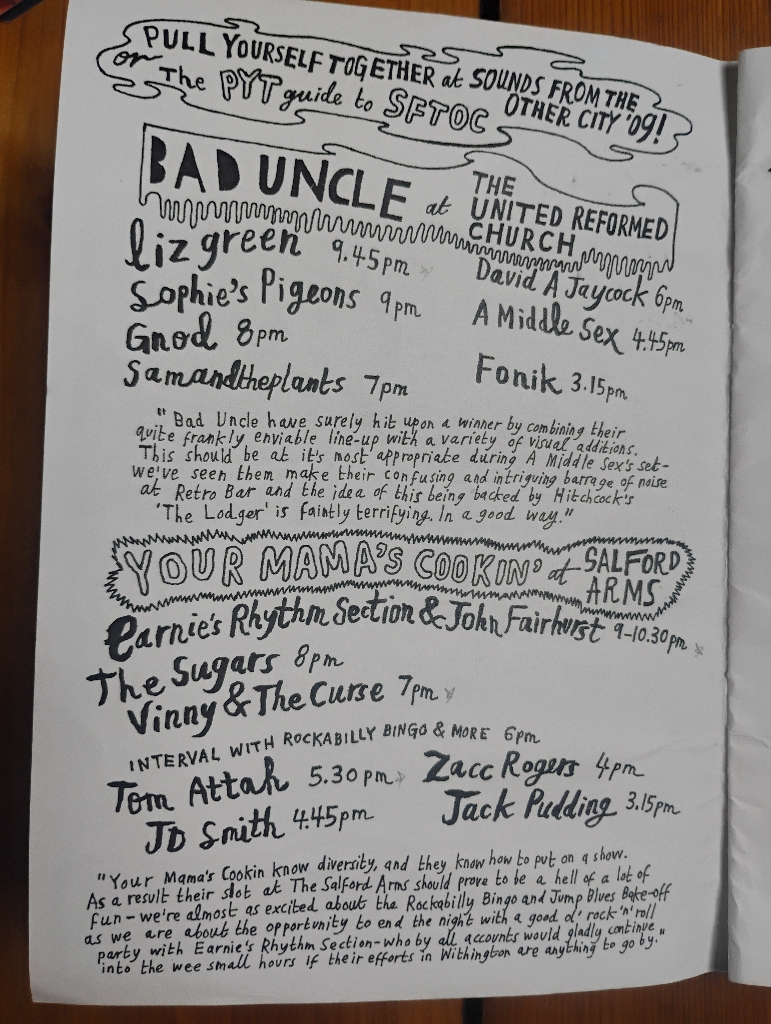 PULL YOURSELF TOGETHER at SOUNDS FROM THE
or The PYT guide to SFTOC OTHER CITY '09!
BAD UNCLE at THE
UNITED REFORMED
CHURCH
liz green 9.45pm
Sophie's Pigeons 9pm
Gnod 8pm
Samandtheplants 7pm
David A Jaycock 6pm
A Middle Sex 4.45pm
Fonik 3.15pm
"Bad Uncle have surely hit upon a winner by combining their
quite frankly enviable line-up with a variety of visual additions.
This should be at it's most appropriate during A Middle Sex's set-
we've seen them make their confusing and intriguing barrage of noise
at Retro Bar and the idea of this being backed by Hitchcock's
'The Lodger' is faintly terrifying. In a good way."
YOUR MAMA'S COOKIN' at SALFORD
ARMS
Earnie's Rhythm Section & John Fairhurst 9-10.30pm
The Sugars 8pm
Vinny & The Curse 7pm
INTERVAL WITH ROCKABILLY BINGO & MORE 6pm
Tom Attah 5.30pm
JD Smith 4.45pm
Zacc Rogers 4pm
Jack Pudding 3.15pm
"Your Mama's Cookin know diversity, and they know how to put on a show.
As a result their slot at The Salford Arms should prove to be a hell of a lot of
fun - we're almost as excited about the Rockabilly Bingo and Jump Blues Bake-off
as we are about the opportunity to end the night with a good ol' rock 'n' roll
party with Earnie's Rhythm Section - who by all accounts would gladly continue
into the wee small hours if their efforts in Withington are anything to go by."